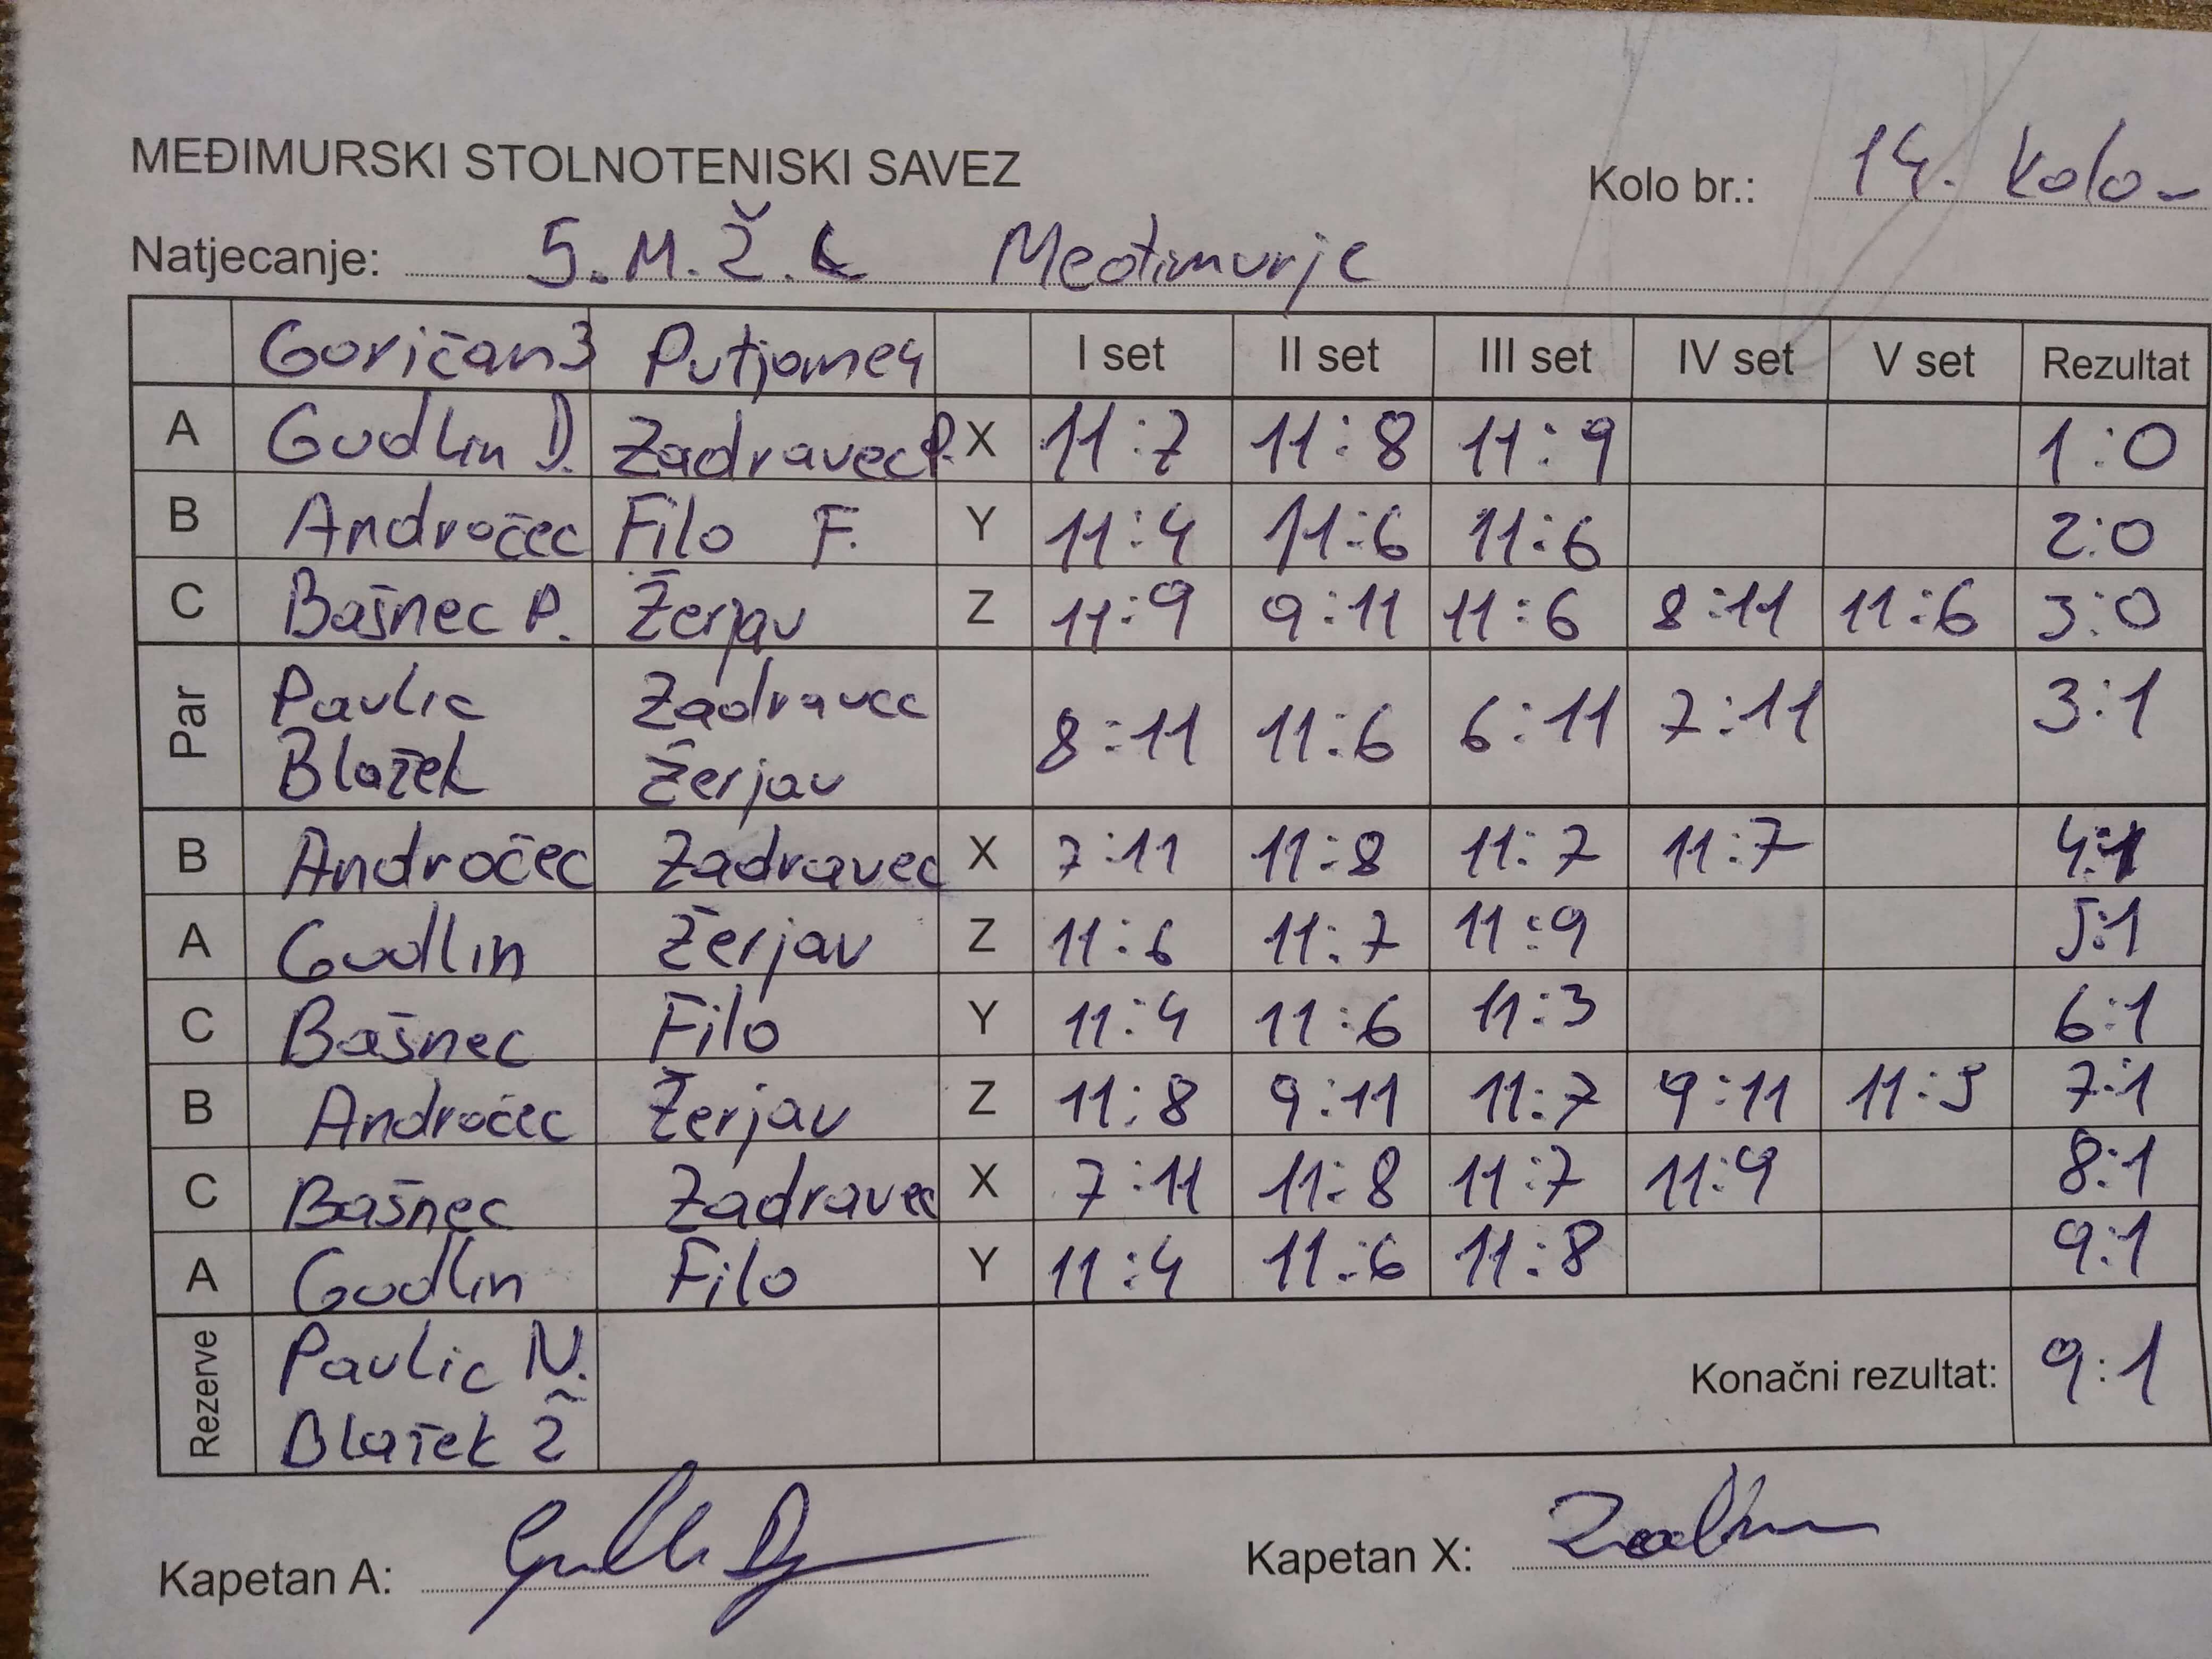 MEĐIMURSKI STOLNOTENISKI SAVEZ
Kolo br.: 14. kolo-
Natjecanje: 5. M.Ž.L Međimurje
Goričan3 Putjane4 I set II set III set IV set V set Rezultat
A Gudlin D. Zadravec P. X 11:7 11:8 11:9 1:0
B Andročec Filo F. Y 11:4 11:6 11:6 2:0
C Bašnec P. Žerjav Z 11:9 9:11 11:6 8:11 11:6 3:0
Par Pavlic Zadravec 8:11 11:6 6:11 7:11 3:1
Blažek Žerjav
B Andročec Zadravec X 7:11 11:8 11:7 11:7 4:1
A Gudlin Žerjav Z 11:6 11:7 11:9 5:1
C Bašnec Filo Y 11:4 11:6 11:3 6:1
B Andročec Žerjav Z 11:8 9:11 11:7 9:11 11:5 7:1
C Bašnec Zadravec X 7:11 11:8 11:7 11:9 8:1
A Gudlin Filo Y 11:4 11:6 11:8 9:1
Rezerve Pavlic N. Konačni rezultat: 9:1
Blažek Ž
Kapetan A: Kapetan X: